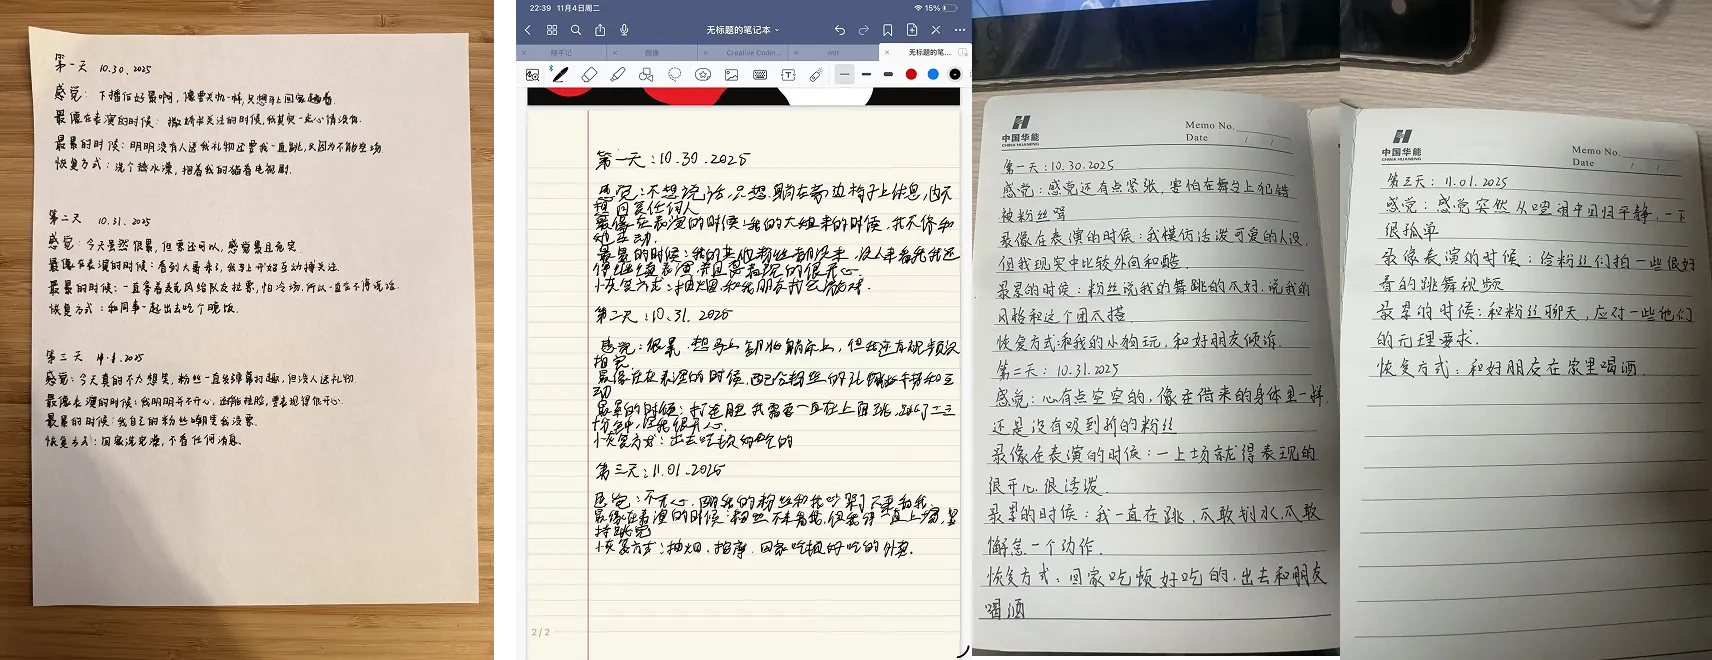 第一天 10.30.2025
感觉：下播后好累啊，像要失物一样，只想马上回家躺着.
最像在表演的时候：撒娇求关注的时候，我其实一点心情没有.
最累的时候：明明没有人送我礼物还要我一直跳，只因为不能空场
恢复方式：洗个热水澡，抱着我的猫看电视剧.
第二天 10.31.2025
感觉：今天虽然很累，但要还可以，感觉累且充实.
最像在表演的时候：看到大哥来了，我马上开始互动搏关注.
最累的时候：一直穿着表危风给队友拉票，怕冷场，所以一直在不停说话.
恢复方式：和同事一起出去吃个晚饭.
第三天 2025
感觉：今天真的不力想笑，粉丝一直发弹幕打趣，但没人送礼物
最像表演的时候：我明明并不开心，还能挂脸，要表现得很开心.
最累的时候：我自己的粉丝嘲笑我没票.
恢复方式：回家洗完澡，不看任何消息.
22:39 11月4日周二
15%
无标题的笔记本
随手记
图像
Creative Codin...
mtt
无标题的笔...
第一天：10.30.2025
感觉：不想说话，只想躺在旁边椅子上休息，也不
想回复任何人
最像在表演的时候：我的大姐来的时候，我不停和
她互动.
最累的时候：我的其他粉丝都没来，没人来看我我还
得继续表演，并且要表现的很开心.
恢复方式：抽烟，和我朋友
第二天：10.31.2025
感觉：很累，想马上卸妆躺床上，但我还有视频没
拍完
最像在表演的时候，西己合粉丝的礼物
动
最累的时候：打连胜，我需要一直在上面跳，跳了二三
十分钟，
恢复方式：出去吃顿好吃的
第三天：11.01.2025
感觉：不开心，因我的粉丝和我吵架了不来看我
最像在表演的时候：粉丝不来看我，但我得一直上场，坚
持跳完
恢复方式：抽烟，按摩，回家吃顿好吃的外卖.
2/2
中国华能
CHINA HUANENG
Memo No.
Date / /
第一天：10.30.2025
感觉：感觉还有点紧张，害怕在舞台上犯错
被粉丝骂
最像在表演的时候：我模仿活泼可爱的人设，
但我现实中比较外向和酷.
最累的时候：粉丝说我的舞跳的不好，说我的
风格和这个团不搭
恢复方式：和我的小狗玩，和好朋友倾诉.
第二天：10.31.2025
感觉：心有点空空的，像在借来的身体里一样，
还是没有吸到新的粉丝
最像在表演的时候：一上场就得表现的
很开心很活泼.
最累的时候：我一直在跳，不敢划水，不敢
懈怠一个动作.
恢复方式：回家吃顿好吃的，出去和朋友
喝酒
中国华能
CHINA HUANENG
Memo No.
Date / /
第三天：11.01.2025
感觉：感觉突然从喧闹中回归平静，一下
很孤单
最像表演的时候：给粉丝们拍一些很好
看的跳舞视频
最累的时候：和粉丝聊天，应对一些他们
的无理要求.
恢复方式：和好朋友在家里喝酒.